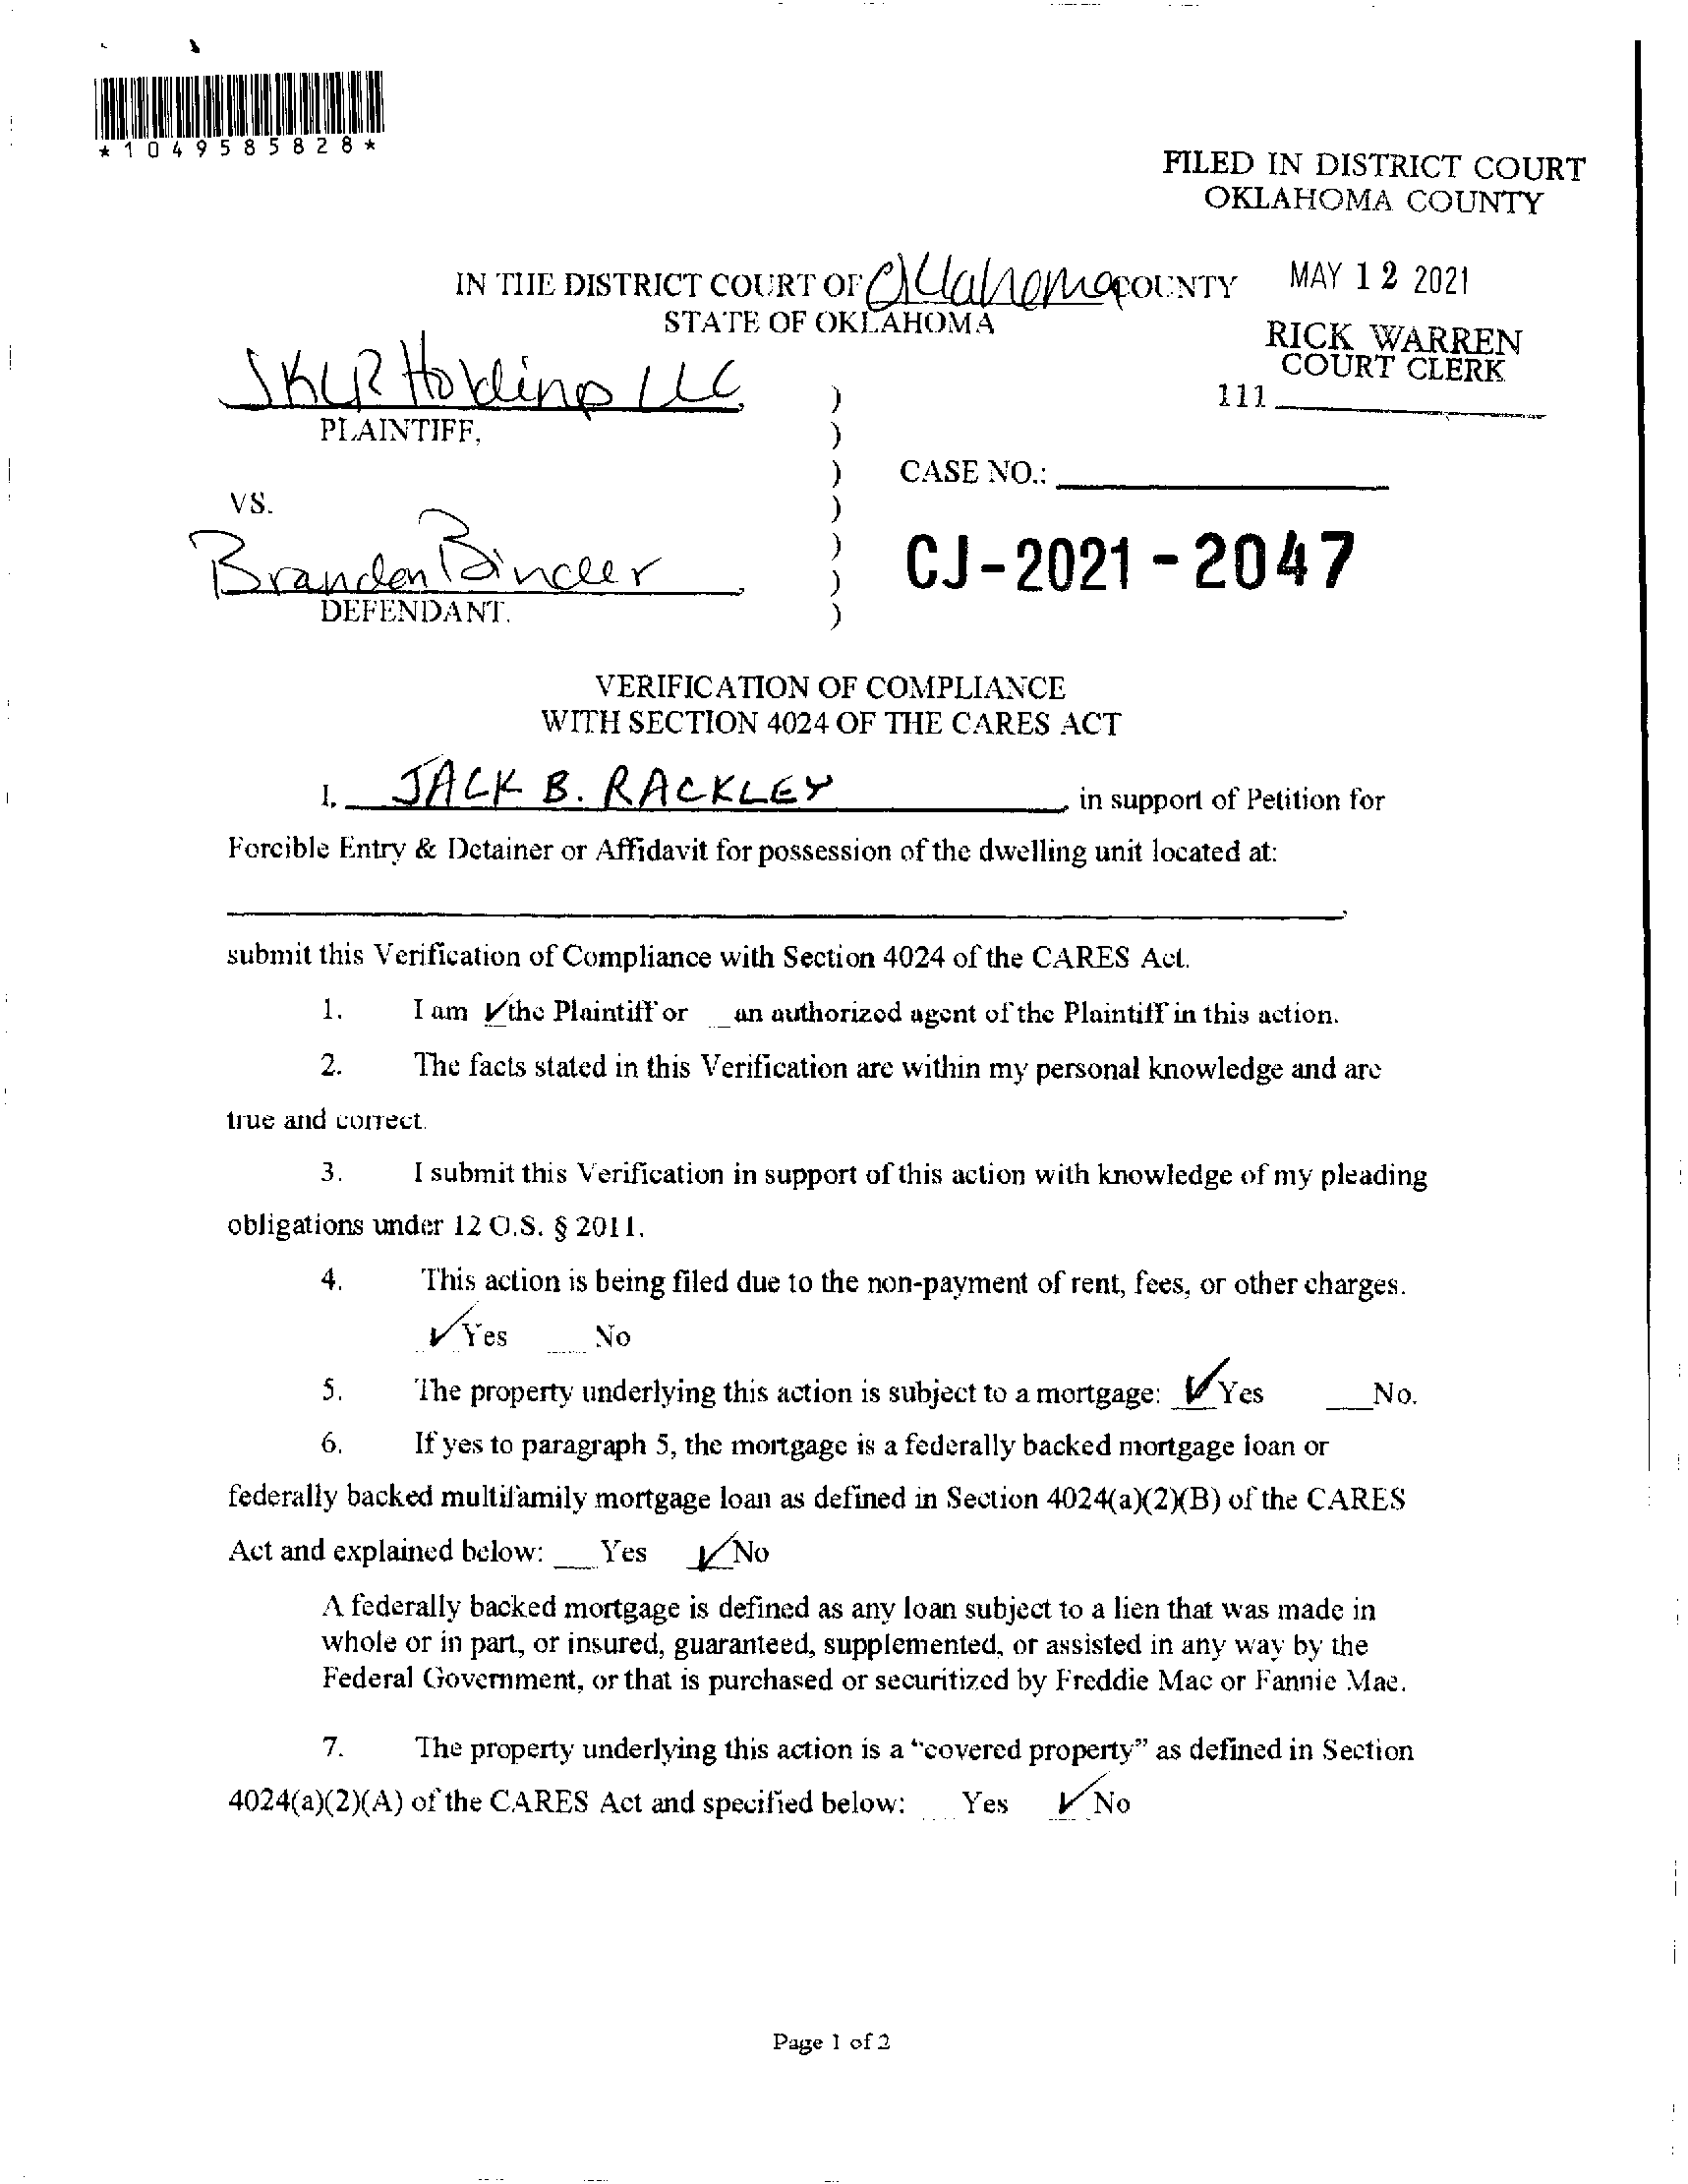 *1049585828*
FILED IN DISTRICT COURT
OKLAHOMA COUNTY
MAY 12 2021
RICK WARREN
COURT CLERK
111
IN THE DISTRICT COURT OF Oklahoma COUNTY
STATE OF OKLAHOMA
Holdings LLC
PLAINTIFF,
VS.
Brandon Binder
DEFENDANT.
)
)
)
)
)
)
)
CASE NO.:
CJ-2021-2047
VERIFICATION OF COMPLIANCE
WITH SECTION 4024 OF THE CARES ACT
I, JACK B. RACKLEY, in support of Petition for
Forcible Entry & Detainer or Affidavit for possession of the dwelling unit located at:
,
submit this Verification of Compliance with Section 4024 of the CARES Act.
1. I am ✓ the Plaintiff or __ an authorized agent of the Plaintiff in this action.
2. The facts stated in this Verification are within my personal knowledge and are
true and correct.
3. I submit this Verification in support of this action with knowledge of my pleading
obligations under 12 O.S. § 2011.
4. This action is being filed due to the non-payment of rent, fees, or other charges.
✓ Yes ___ No
5. The property underlying this action is subject to a mortgage: ✓ Yes ___ No.
6. If yes to paragraph 5, the mortgage is a federally backed mortgage loan or
federally backed multifamily mortgage loan as defined in Section 4024(a)(2)(B) of the CARES
Act and explained below: ___ Yes ✓ No
A federally backed mortgage is defined as any loan subject to a lien that was made in
whole or in part, or insured, guaranteed, supplemented, or assisted in any way by the
Federal Government, or that is purchased or securitized by Freddie Mac or Fannie Mae.
7. The property underlying this action is a “covered property” as defined in Section
4024(a)(2)(A) of the CARES Act and specified below: ___ Yes ✓ No
Page 1 of 2